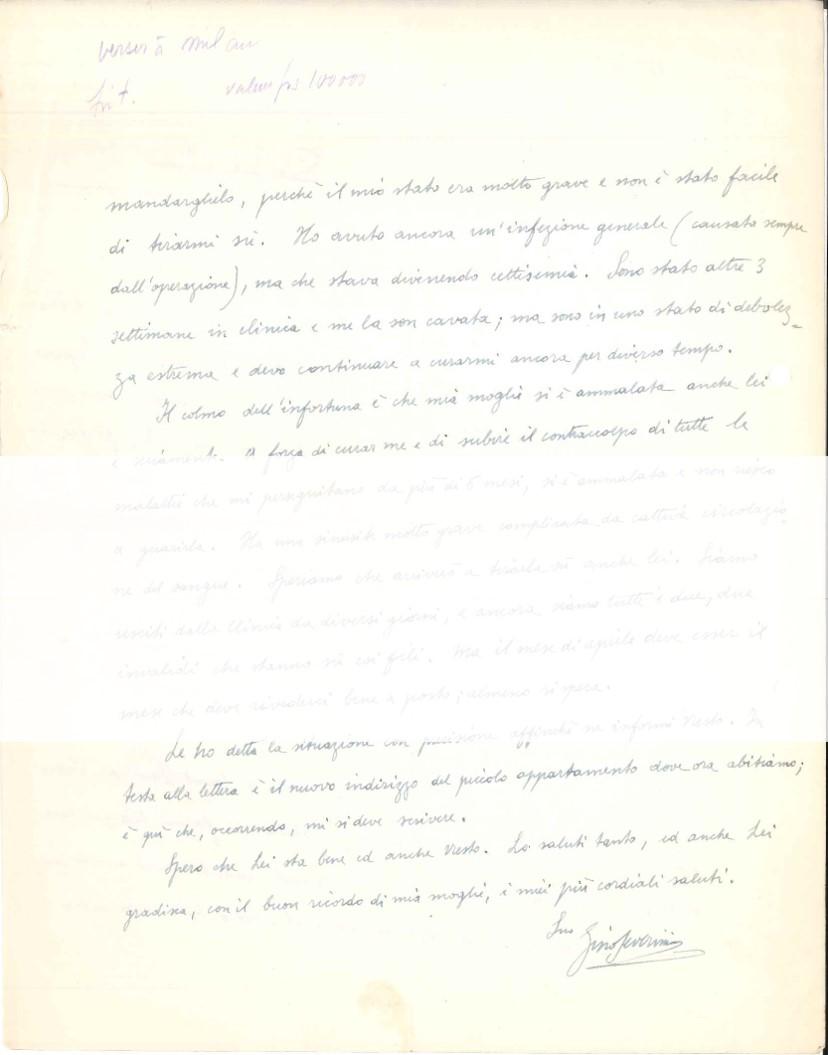 verserà Milan
valeur frs 100000
mandarglielo, perchè il mio stato era molto grave e non è stato facile
di tirarmi su. Ho avuto ancora un'infezione generale (causata sempre
dall'operazione), ma che stava divenendo setticemia. Sono stato altre 3
settimane in clinica e me la son cavata; ma sono in uno stato di debolez-
za estrema e devo continuare a curarmi ancora per diverso tempo.
Il colmo dell'infortuna è che mia moglie si è ammalata anche lei
A forza di curar me e di subire il contraccolpo di tutte le
malattie che mi perseguitano da più di 6 mesi, si è ammalata e non riesce
a guarirla. Ha una sinusite molto grave complicata da cattiva circolazio
ne del sangue. Speriamo che arriverò a tirarla su anche lei. Siamo
usciti dalla clinica da diversi giorni, e ancora siamo tutti e due, due
invalidi che stanno su coi fili. Ma il mese di aprile deve esser il
mese che deve rivederci bene a posto; almeno si spera.
Le ho detto la situazione con precisione affinchè ne informi Vresto. In
testa alla lettera è il nuovo indirizzo del piccolo appartamento dove ora abitiamo;
è qui che, occorrendo, mi si deve scrivere.
Spero che Lei sta bene ed anche Vresto. Lo saluti tanto, ed anche Lei
gradisca, con il buon ricordo di mia moglie, i miei più cordiali saluti.
Suo Gino Severini